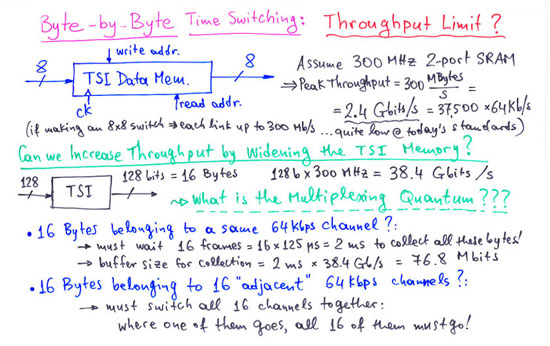 Byte-by-Byte Time Switching: Throughput Limit?
write addr.
8
TSI Data Mem.
8
ck
read addr.
Assume 300 MHz 2-port SRAM
⇒ Peak Throughput = 300 MBytes/s =
= 2.4 Gbits/s = 37,500 × 64 Kb/s
(if making an 8x8 switch ⇒ each link up to 300 Mb/s ... quite low @ today's standards)
Can we Increase Throughput by Widening the TSI Memory?
128
TSI
128 bits = 16 Bytes
128 b × 300 MHz = 38.4 Gbits/s
⇒ What is the Multiplexing Quantum???
• 16 Bytes belonging to a same 64 Kbps channel?:
→ must wait 16 frames = 16 × 125 μs = 2 ms to collect all these bytes!
→ buffer size for collection = 2 ms × 38.4 Gb/s = 76.8 Mbits
• 16 Bytes belonging to 16 "adjacent" 64 Kbps channels?:
→ must switch all 16 channels together:
where one of them goes, all 16 of them must go!